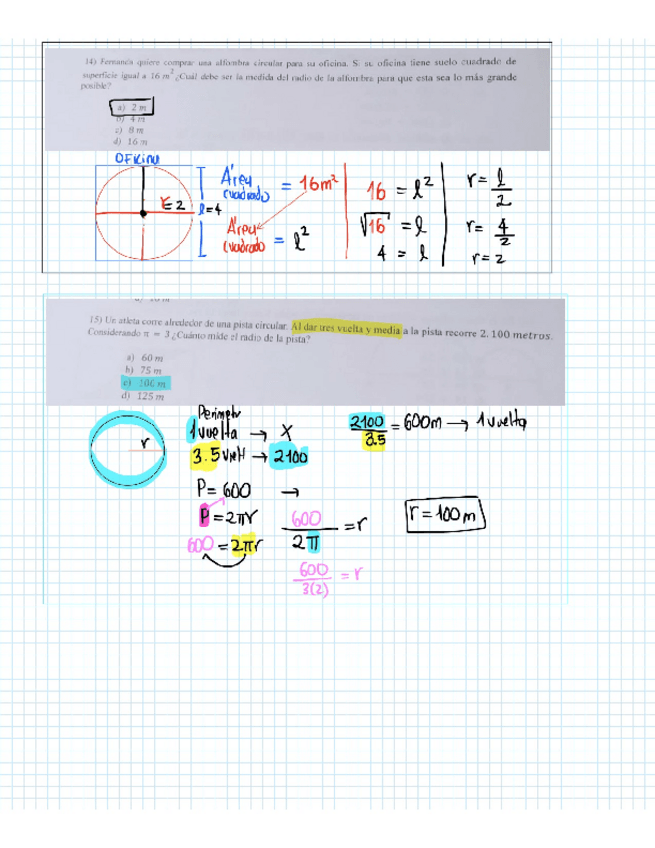 14) Fernanda quiere comprar una alfombra circular para su oficina. Si su oficina tiene suelo cuadrado de
superficie igual a 16 m² ¿Cuál debe ser la medida del radio de la alfombra para que esta sea lo más grande
posible?
a) 2 m
b) 4 m
c) 8 m
d) 16 m
OFICINA
r=2
l=4
Área cuadrado = 16m²
Área cuadrado = l²
16 = l²
√16 = l
4 = l
r= l/2
r= 4/2
r=2
15) Un atleta corre alrededor de una pista circular. Al dar tres vuelta y media a la pista recorre 2.100 metros.
Considerando π = 3 ¿Cuánto mide el radio de la pista?
a) 60 m
b) 75 m
c) 100 m
d) 125 m
r
Perimetr
1 vuelta → X
3.5 vuelt → 2100
2100/3.5 = 600m → 1 vuelta
P= 600 →
P = 2πr
600 = 2πr
600/2π = r
600/3(2) = r
r = 100 m